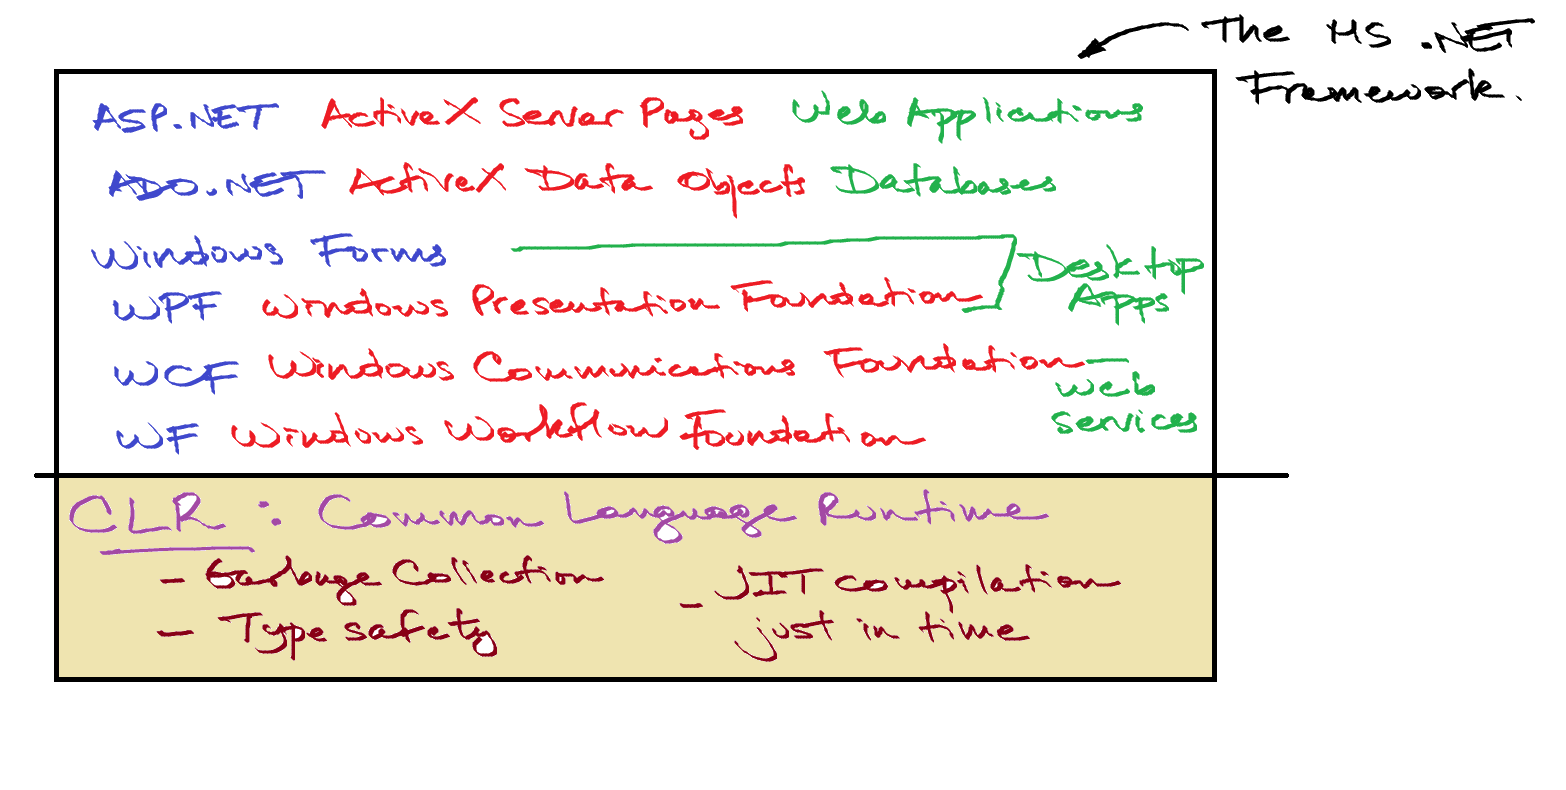 The MS .NET
Framework.
ASP.NET ActiveX Server Pages Web Applications
ADO.NET ActiveX Data Objects Databases
Windows Forms
Desktop
Apps
WPF Windows Presentation Foundation
WCF Windows Communications Foundation
Web
Services
WF Windows Workflow Foundation
CLR : Common Language Runtime
- Garbage Collection
- JIT compilation
- Type safety
just in time